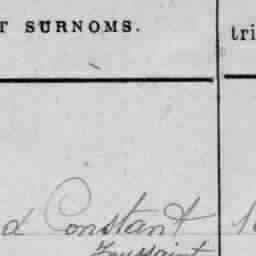 T SURNOMS.
tri
d Constant
Toussaint